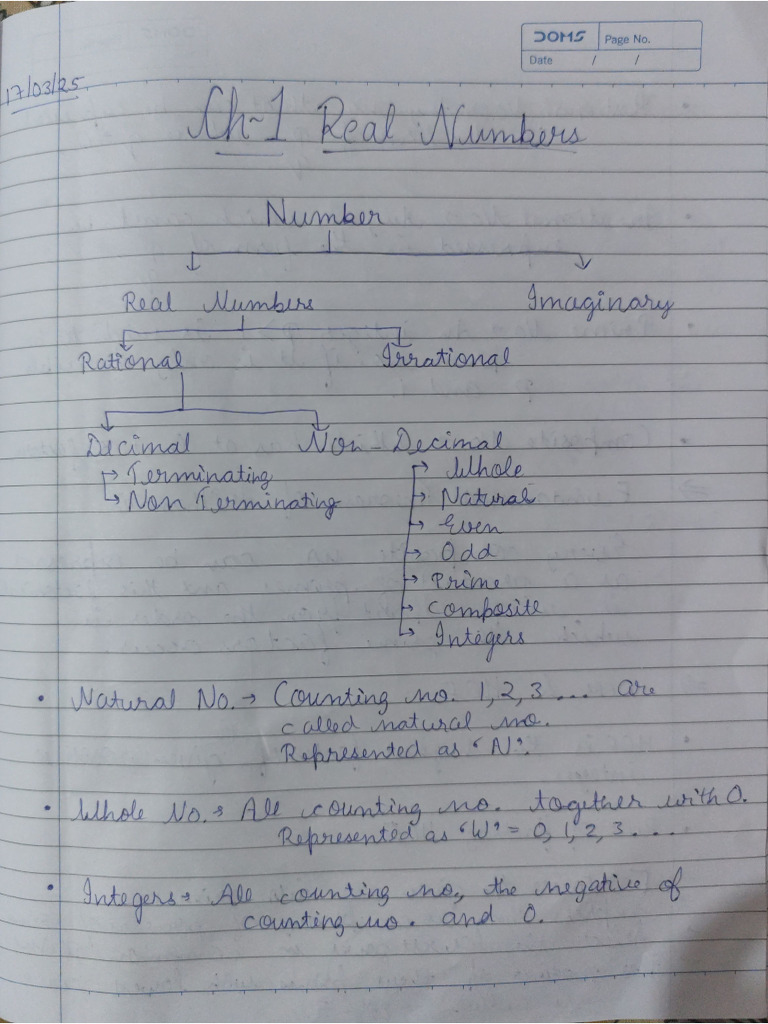 DOMS Page No.
Date / /
17/03/25
Ch-1 Real Numbers
Number
Real Numbers Imaginary
Rational Irrational
Decimal Non-Decimal
→ Terminating → Whole
→ Non Terminating → Natural
→ Even
→ Odd
→ Prime
→ Composite
→ Integers
• Natural No. → Counting no. 1, 2, 3 .... are
called natural no.
Represented as 'N'.
• Whole No. → All counting no. together with 0.
Represented as 'W' = 0, 1, 2, 3 ....
• Integers → All counting no, the negative of
counting no. and 0.